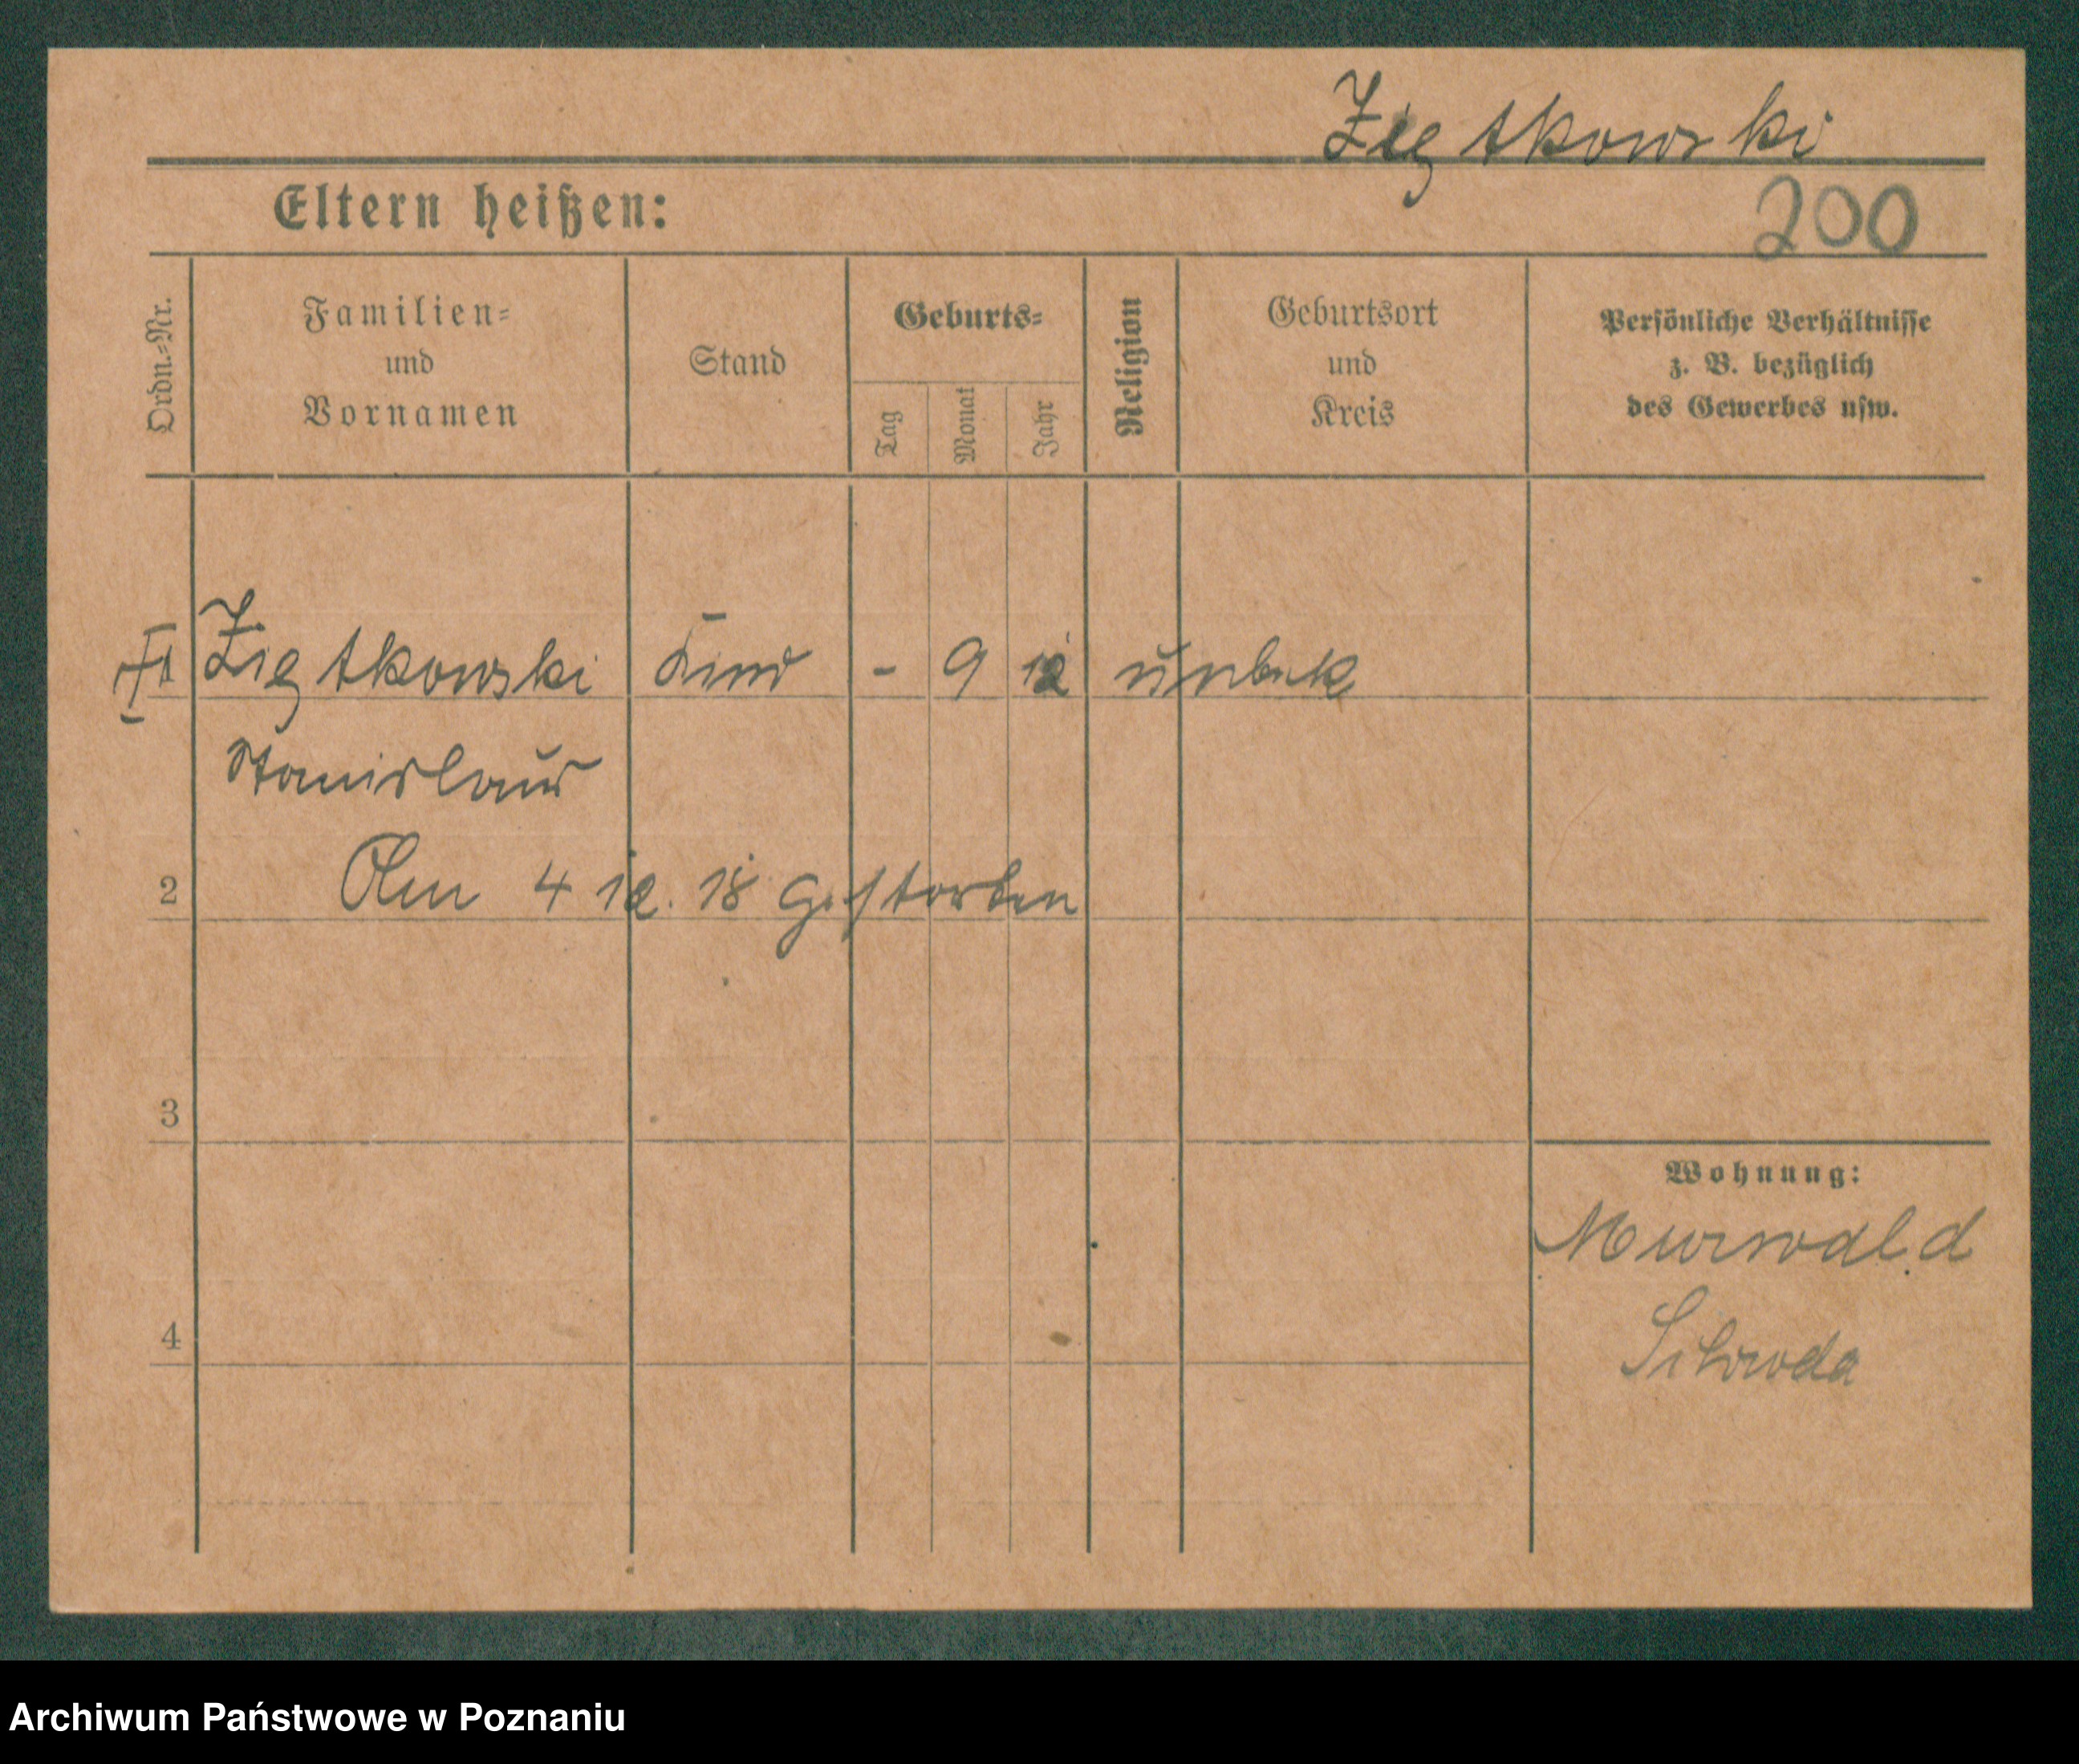 Ziętkowski
Eltern heißen:
200
Ordn.-Nr.
Familien-
und
Vornamen
Stand
Geburts-
Tag
Monat
Jahr
Religion
Geburtsort
und
Kreis
Persönliche Verhältnisse
z. B. bezüglich
des Gewerbes usw.
Ziętkowski Kind - 9 12 unbek
Stanislaus
2 Am 4 12. 18 gestorben
3
Wohnung:
Murwald
4
Archiwum Państwowe w Poznaniu